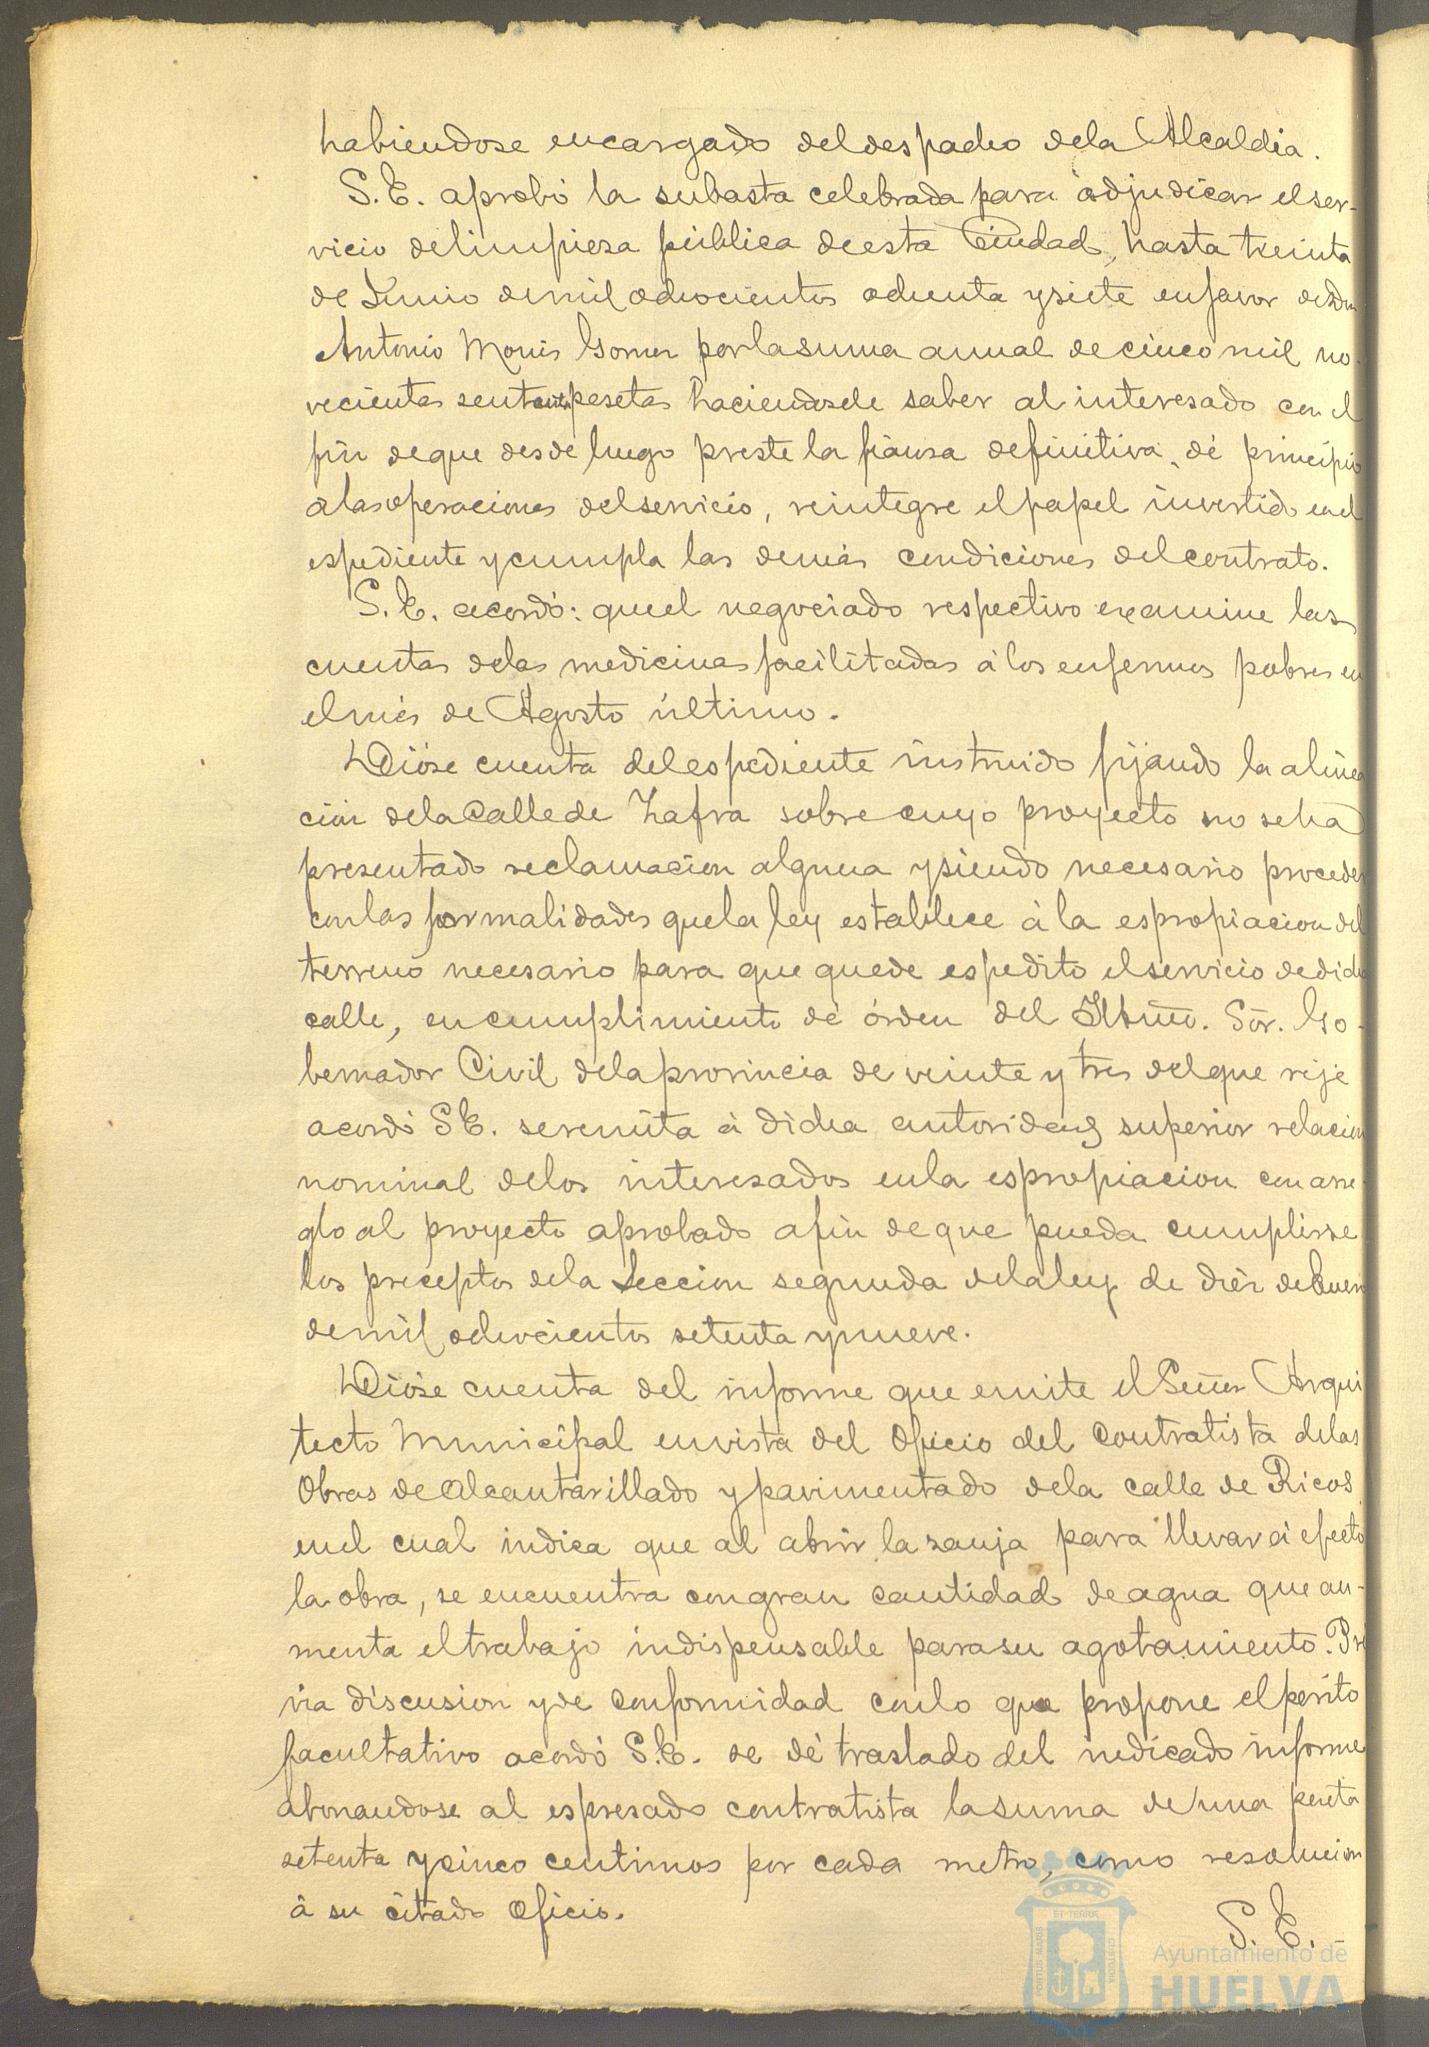 habiendose encargado del despacho dela Alcaldia.
S.E. aprobó la subasta celebrada para adjudicar el ser-
vicio de limpieza pública de esta Ciudad, hasta treinta
de Junio de mil ochocientos ochenta y siete en favor de Don
Antonio Monis Gomez por la suma anual de cinco mil no-
vecientas pesetas haciendosele saber al interesado con el
fin de que desde luego preste la fianza definitiva, dé principio
a las operaciones del servicio, reintegre el papel invertido en el
espediente y cumpla las demás condiciones del contrato.
S.E. acordó: que el negociado respectivo examine las
cuentas de las medicinas facilitadas á los enfermos pobres en
el més de Agosto último.
Dióse cuenta del espediente instruido fijando la alinea
ción de la Calle de Zafra sobre cuyo proyecto no se ha
presentado reclamacion alguna y siendo necesario proceder
con las formalidades que la ley establece á la espropiacion del
terreno necesario para que quede espedito el servicio de dicha
calle, en cumplimiento de órden del Iltmo. Sor. Go-
bernador Civil de la provincia de veinte y tres del que rije
acordó S.E. se remita á dicha autoridad superior relacion
nominal de los interesados en la espropiacion con arre-
glo al proyecto aprobado a fin de que pueda cumplirse
los preceptos de la Seccion segunda de la ley de diez de Enero
de mil ochocientos setenta y nueve.
Dióse cuenta del informe que emite el Señor Arqui
tecto Municipal en vista del Oficio del Contratista de las
Obras de Alcantarillado y pavimentado de la calle de Ricos
en el cual indica que al abrir la zanja para llevar á efecto
la obra, se encuentra con gran cantidad de agua que au-
menta el trabajo indispensable para su agotamiento. Pré
via discusion y de conformidad con lo que propone el perito
facultativo acordó S.E. se dé traslado del indicado informe
abonandose al espresado contratista la suma de una peseta
setenta y cinco centimos por cada metro, como resolucion
á su citado Oficio.
S. E.-
Ayuntamiento de
HUELVA